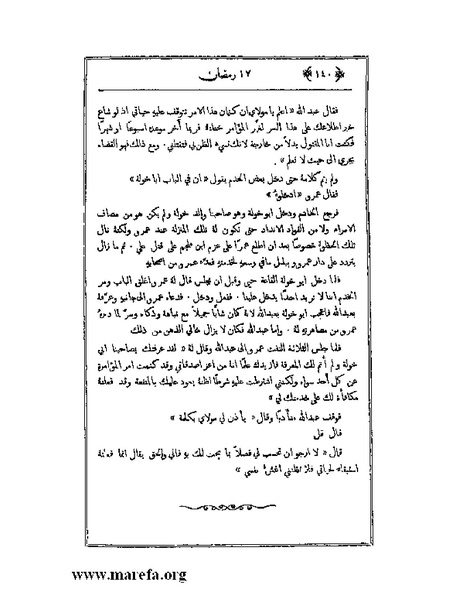 ﴿١٤٠﴾ ١٧ رمضان
فقال عبد الله « اعلم يا مولاي ان كتمان هذا الامر تتوقف عليه حياتي اذ لو شاع
خبر اطلاعك على هذا السر المؤامر فربما أخر موعده اسبوعًا او شهرًا
فكنت انا المقتول بدلاً من خارجة لانك تسيء الظن بي فتقتلني . ومع ذلك فهو القضاء
يجري الى حيث لا نعلم »
ولم يتم كلامه حتى دخل بعض الخدم يقول « ان في الباب ابا خولة »
فقال عمرو « ادخلوه »
فرجع الخادم ودخل ابو خولة وهو صاحبنا والد خولة ولم يكن هو من مصاف
الامراء ولا من القواد الانداد حتى تكون له تلك المنزلة عند عمرو ولكنه نال
تلك الحظوة خصوصًا بعد ان اطلع عمرًا على عزم ابن ملجم على قتل علي . ثم ما زال
يتردد على دار عمرو ويبذل ما في وسعه لخدمته فعده عمرو من اصحابه
فلما دخل ابو خولة القاعة حيى وقبل ان يجلس قال له عمرو اغلق الباب ومر
الخدم اننا لا نريد احدًا يدخل علينا . ففعل ودخل . فدعاه عمرو الى جانبه وعرفه
بعبدالله فاعجب ابو خولة بعبدالله لانه كان شابًا جميلاً مع نباهة وذكاء وسر لما دعاه
عمرو من مصاهرته له . واما عبدالله فكان لا يزال خالي الذهن من ذلك
فلما جلس الثلاثة التفت عمرو الى عبدالله وقال له « لقد عرفتك بصاحبنا ابي
خولة ولم أتم تلك المعرفة فأزيدك علمًا انه من اعز اصدقائي وقد كتمت امر المؤامرة
عن كل أحد سواه ولكنني اشترطت عليه شرطًا اظنه يعود عليك بالمنفعة وقد فعلته
مكافأة لك على خدمتك لي »
فوقف عبدالله متأدبًا وقال « يأذن لي مولاي بكلمة »
قال قل
قال « لا ارجو ان تحسب لي فضلاً بما بحت لك به فاني والحق يقال انما فعلته
استبقاء لحياتي فلا تظنني اغش نفسي »
www.marefa.org